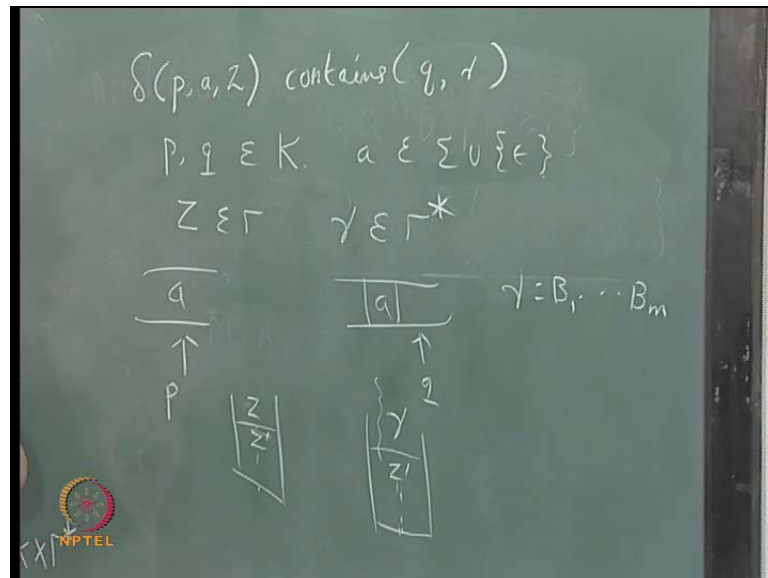 δ(p, a, Z) contains (q, γ)
p, q ε K. a ε Σ ∪ {ϵ}
Z ε Γ γ ε Γ*
a a γ = B₁ ... Bₘ
p q
Z γ
Z' Z'
NPTEL